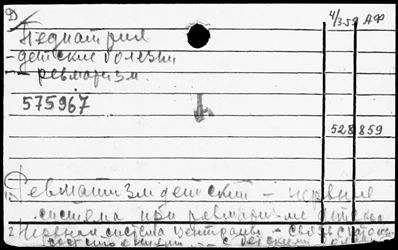 Д
4/359 АФ
Педиатрия
- детские болезни
- ревматизм.
575967
528859
1. Ревматизм детский - нервная
система при ревматизме детском
2 Нервная система центральн - связь с